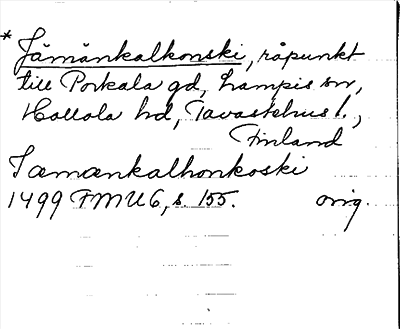 * Jämänkalkonski, råpunkt
till Porkala gd, Lampis sn,
Hollola hd, Tavastehus l.,
Finland
Jamankalhonkoski
1499 FMU 6, s. 155. orig.